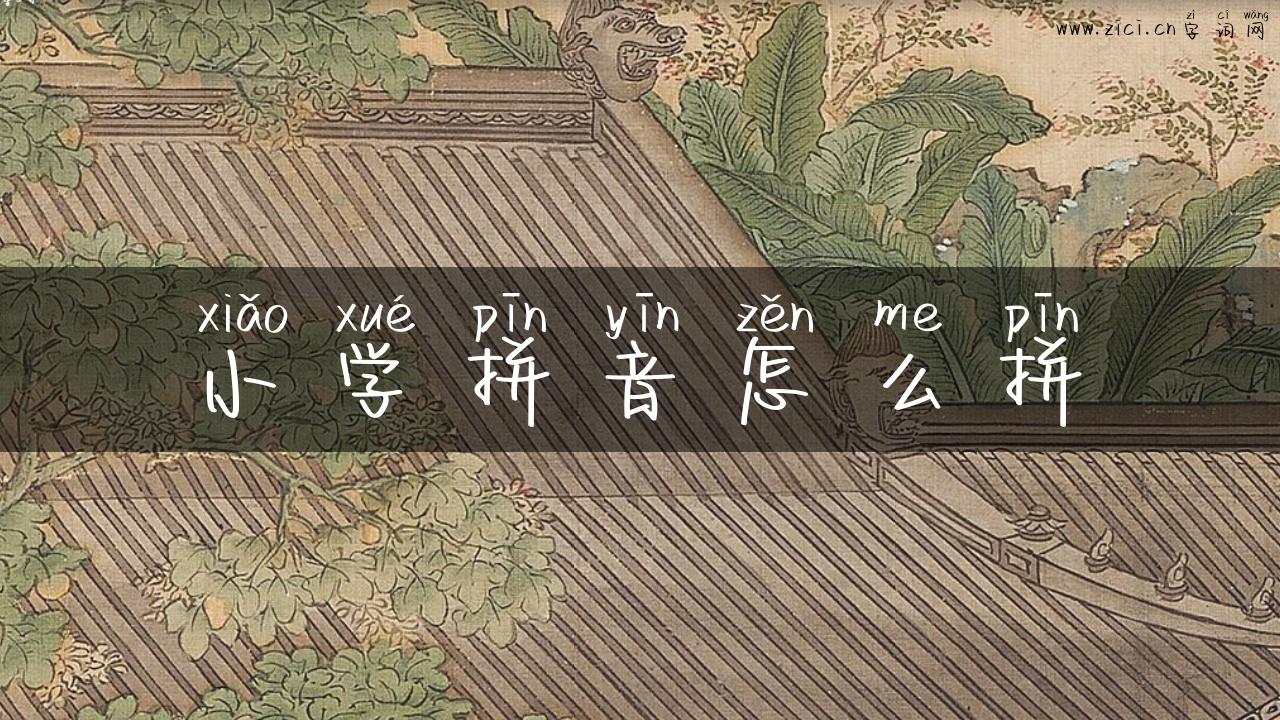 zì cí wǎng
www.zici.cn 字词网
xiǎo xué pīn yīn zěn me pīn
小学拼音怎么拼